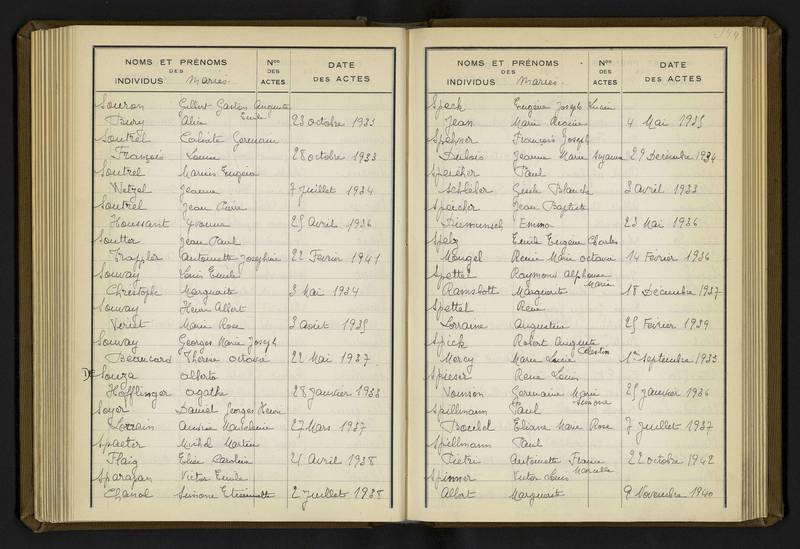 NOMS ET PRÉNOMS
DES
INDIVIDUS Mariés
Nos
DES
ACTES
DATE
DES ACTES
Souron Gilbert Gaston Auguste
Bury Alice Emile 23 octobre 1933
Soutrel Calixte Germain
François Louise 28 octobre 1933
Soutrel Marius Eugène
Wetzel Jeanne 7 juillet 1934
Soutrel Jean Pierre
Houssant Yvonne 25 Avril 1936
Soutter Jean Paul
Trappler Antoinette Joséphine 22 Février 1941
Souvay Louis Emile
Christophe Marguerite 3 Mai 1934
Souvay Henri Albert
Marie Rose 3 Août 1935
Souvay Georges Marie Joseph
Thérèse Octavie 22 Mai 1937
De Souza Alberto
Hofflinger Agathe 28 janvier 1933
Soyer Daniel Georges Henri
Lorrain Madeleine 27 Mars 1937
Spaeter Michel Martin
Flaig Caroline 21 Avril 1938
Sparapan Victor Emile
Chanol Simone Etiennette 2 juillet 1938
NOMS ET PRÉNOMS
DES
INDIVIDUS Mariés
Nos
DES
ACTES
DATE
DES ACTES
Speck Eugène Joseph Lucien
Jean Marie 4 Mai 1935
Spehner François Joseph
Dubois Jeanne Marie Suzanne 29 Décembre 1934
Speicher Paul
Blanche 3 Avril 1933
Speicher Jean Baptiste
Diemunsch Emma 23 Mai 1936
Spelz Emile Eugène Charles
Mougel Renée Marie Octavie 14 Février 1936
Spettel Raymond Alphonse Marie
Ramstott Marguerite 18 Décembre 1937
Spettel René
Lorraine Augustine 25 Février 1939
Spick Robert Auguste Célestin
Mercy Marie Lucie 1er septembre 1933
Spieser René Louis
Vonson Germaine Marie Simone 25 janvier 1936
Spillmann Paul
Eliane Marie Rose 7 juillet 1937
Spillmann Paul
Pietri Antoinette France Marcelle 22 octobre 1942
Spinner Victor Louis
Albert Marguerite 9 Novembre 1940